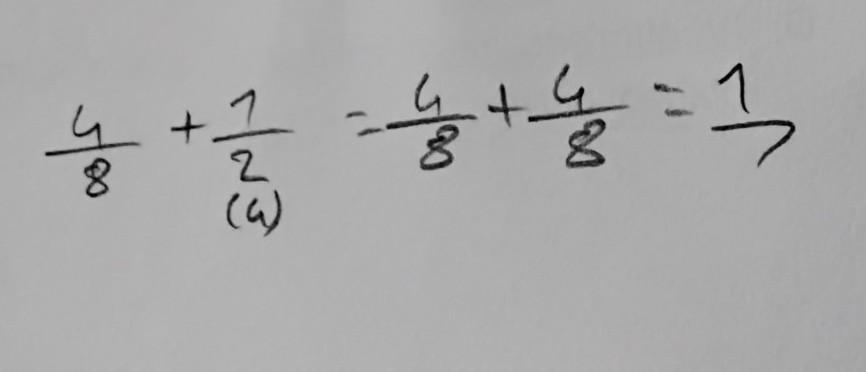 4/8 + 1/2 = 4/8 + 4/8 = 1
(4)